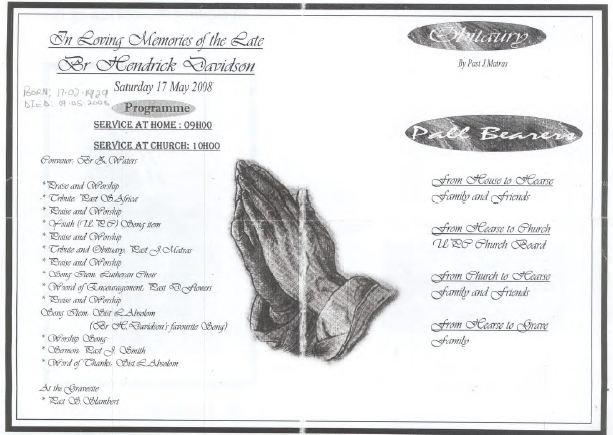 In Loving Memories of the Late
Br Hendrick Davidson
Saturday 17 May 2008
BORN; 17-02-1929
DIED: 09-05-2008
Programme
SERVICE AT HOME : 09H00
SERVICE AT CHURCH: 10H00
Convenor: Br Z. Waters
* Praise and Worship
* Tribute: Past S. Africa
* Praise and Worship
* Youth (U.P.C) Song item
* Praise and Worship
* Tribute and Obituary: Past J. Matras
* Praise and Worship
* Song Item: Lutheran Choir
* Word of Encouragement: Past D. Flowers
* Praise and Worship
Song Item: Sist L. Absolom
(Br H. Davidson's favourite Song)
* Worship Song
* Sermon: Past J. Smith
* Word of Thanks: Sist L. Absolom
At the Gravesite
* Past S. Slambert
Obitaury
By Past J. Matras
Pall Bearers
From House to Hearse
Family and Friends
From Hearse to Church
UPC Church Board
From Church to Hearse
Family and Friends
From Hearse to Grave
Family